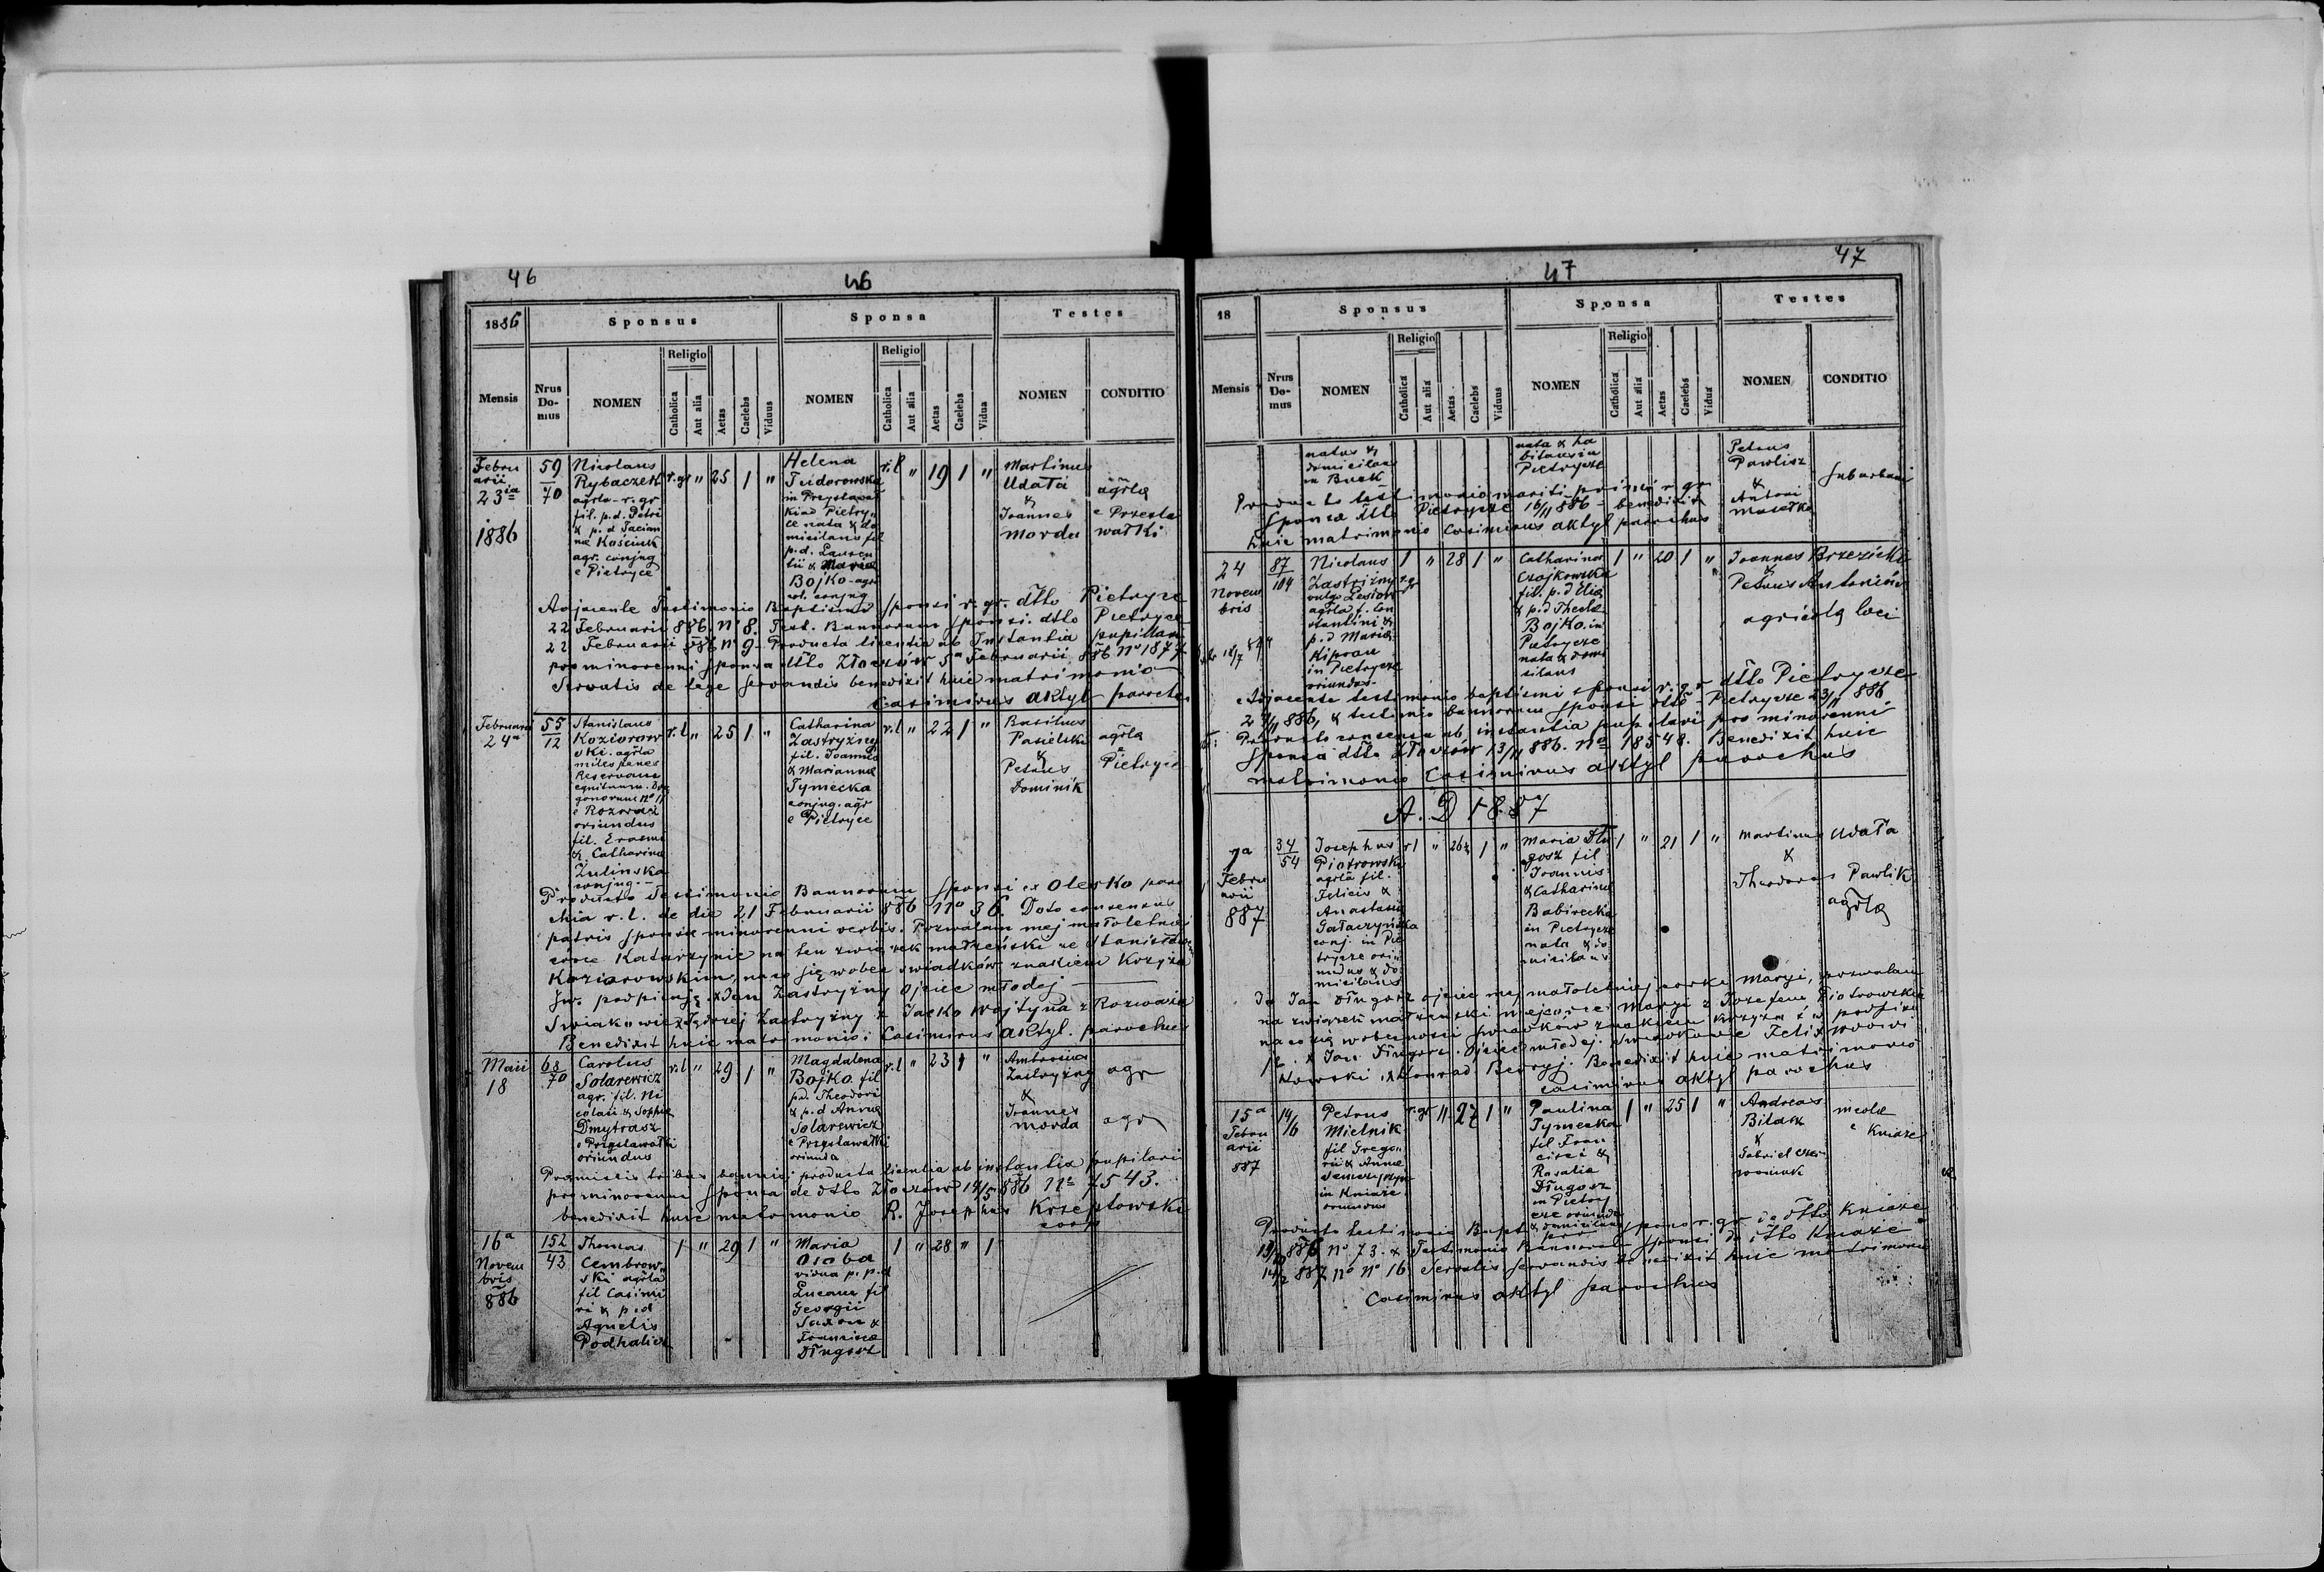 46
46
1886
Sponsus
Sponsa
Testes
Mensis
Nrus Do- mus
NOMEN
Religio
Catholica
Aut alia
Aetas
Caelebs
Viduus
NOMEN
Religio
Catholica
Aut alia
Aetas
Caelebs
Vidua
NOMEN
CONDITIO
Febru
arii
23
1886
59
70
Nicolaus
Rybaczek
agrla - r. gr
fil. p. d. Petri
& p. d. Tacian
nae Kościuk
agr. conjug
e Pietryce
r. gr " 25 1 "
Helena
Teidorowska
in Przystawał
ki ad Pietry
ce nata & do
miciliaris fil
p. d. Lauren
tii & Maria
Bojko - agr
rl. conjug
r. l " 19 1 "
Martinus
Udała
&
Joannes
Morda
agrla
e Przesta
wałki
Adjacente Testimonio Baptismi sponsi r. gr. dtto Pietryce
22 Februarii 886 N° 8. Test. Bannorum sponsi. dtto Pietryce
22 Februarii 886 N° 9 - Producta licentia ab Instantia pupillari
pro minorenni sponsa dtto Złoczów 5a Februarii 886 N° 1877
Servatis de lege servandis benedixit huic matrimonio
Casimirus Aktyl parochus
Februarii
24a
55
12
Stanislaus
Koziorow
ski. agrla
miles penes
Reservam
equitum. Dra
gonorum N° 11
e Rozważ
oriundus
fil. Erasmi
& Catharina
Zulinska
conjug. -
r. l " 25 1 "
Catharina
Zastryżny
fil. Joannis
& Mariannae
Tymecka
conjug. agr
e Pietryce
r. l " 22 1 "
Basilius
Pasielski
&
Petrus
Dominik
agrla
e
Pietryce
Producto Testimonio Bannorum sponsi ex Olesko paro
chia r. l. de die 21 Februarii 886 N° 36. Dato consensu
patris sponsae minorenni verbis. Pozwalam mej małoletniej
córce Katarzynie na ten związek małżeński ze Stanisławem
Koziorowskim, na co się wobec świadków znakiem krzyża
św. podpisuję. x Jan Zastryżny ojciec młodej
Świadkowie x Jędrzej Zastryżny x Jacko Wojtyna z Rozważa
Benedixit huic matrimonio: Casimirus Aktyl. parochus
Maii
18
68
70
Carolus
Solarewicz
agr. fil. Ni
colaii & Sophiae
Dmytrasz
e Przystawałki
oriundus
r. l " 29 1 "
Magdalena
Bojko fil
p. d. Theodori
& p. d Annae
Solarewicz
e Przystawałki
oriunda
r. l " 23 1 "
Ambrosius
Zastryżny
&
Joannes
Morda
agr
agr
Praemissis tribus bannis: producta licentia ab instantia pupilari
pro minorenni sponsa de dtto Złoczów 14/5 886 N° 7543.
benedixit huic matrimonio R. Josephus Krzeptowski
coop
16a
Novem
bris
886
152
43
Thomas
Cembrow
ski agrla
fil Casimi
ri & p. d
Agnetis
Podhalicz
1 " 29 1 "
Maria
Osoba
vidua p. p. d
Lucam fil
Georgii
Saxon &
Franciscae
Długosz
1 " 28 " 1
47
47
18
Sponsus
Sponsa
Testes
Mensis
Nrus Do- mus
NOMEN
Religio
Catholica
Aut alia
Aetas
Caelebs
Viduus
NOMEN
Religio
Catholica
Aut alia
Aetas
Caelebs
Vidua
NOMEN
CONDITIO
natus &
domicilians
in Busk
nata & ha
bitans in
Pietrycze
Petrus
Pawlisz
&
Antoni
Masełko
suburbani
Producto testimonio mariti primi r. gr
sponsae dtto Pietrycze 16/11 886 - benedixit
huic matrimonio Casimirus Aktyl parochus
24
Novem
bris
87
104
Nicolaus
Zastrizny
vulgo Lesiow
agrla f. Con
stantini &
p. d Mariae
Kipran
in Pietrycze
oriundus
1 r. gr " 28 1 "
Catharina
Czajkowska
fil. p. d Elia
& p. d Thecla
Bojko. in
Pietrycze
nata & domi
cilians
1 " 20 1 "
Joannes Brzezicki
&
Petrus Antoniów
agricola loci
Adjacente testimonio baptismi sponsi r. gr dtto Pietrycze
2 4/11 886, & testimonio bannorum sponsi dtto - Pietrycze 23/11 886
Producto consensu ab instantia pupilari pro minorenni
sponsa dtto Złoczów 13/11 886. N° 18548. Benedixit huic
matrimonio Casimirus Aktyl parochus
A. D 1887
7a
Febru
arii
887
34
54
Josephus
Piotrowski
agrla fil.
Felicis &
Anastasia
Gałaczyńska
conj. in Pie
trycze oriu
ndus & do
micilans
r l " 26½ 1 "
Maria Dłu
gosz fil
Joannis
& Catharina
Babirecka
in Pietrycze
nata & do
micilans
1 " 21 1 "
Martinus Udała
&
Theodorus Pawlik
agrla
Ja Jan Długosz ojciec mej małoletniej córki Maryi, pozwalam
na związek małżeński mej córce Maryi z Józefem Piotrowskim
na co się w obecności świadków znakiem krzyża s w podpisu
ję. x Jan Długosz. ojciec młodej. Świadkowie Felix
x Konrad Bedryj. Benedixit huic matrimonio
Casimirus Aktyl parochus
15a
Febru
arii
887
14/16
Petrus
Mielnik
fil Grego
rii & Annae
in Kniaże
oriundus
r. gr " 27 1 "
Paulina
Tymecka
fil Fran
cisci &
Rosalia
Długosz
in Pietry
cze oriunda
& domicilans
1 " 25 1 "
Andreas
Bilak
&
Gabriel
incolae
e Kniaże
Producto testimonio Bapt. pro sponso r. gr de dtto Kniaże
886 N° 73. & Testimonio Bannorum sponsi de dtto Kniaże
14/2 887 N° 16 Servatis servandis benedixit huic matrimonio
Casimirus Aktyl parochus